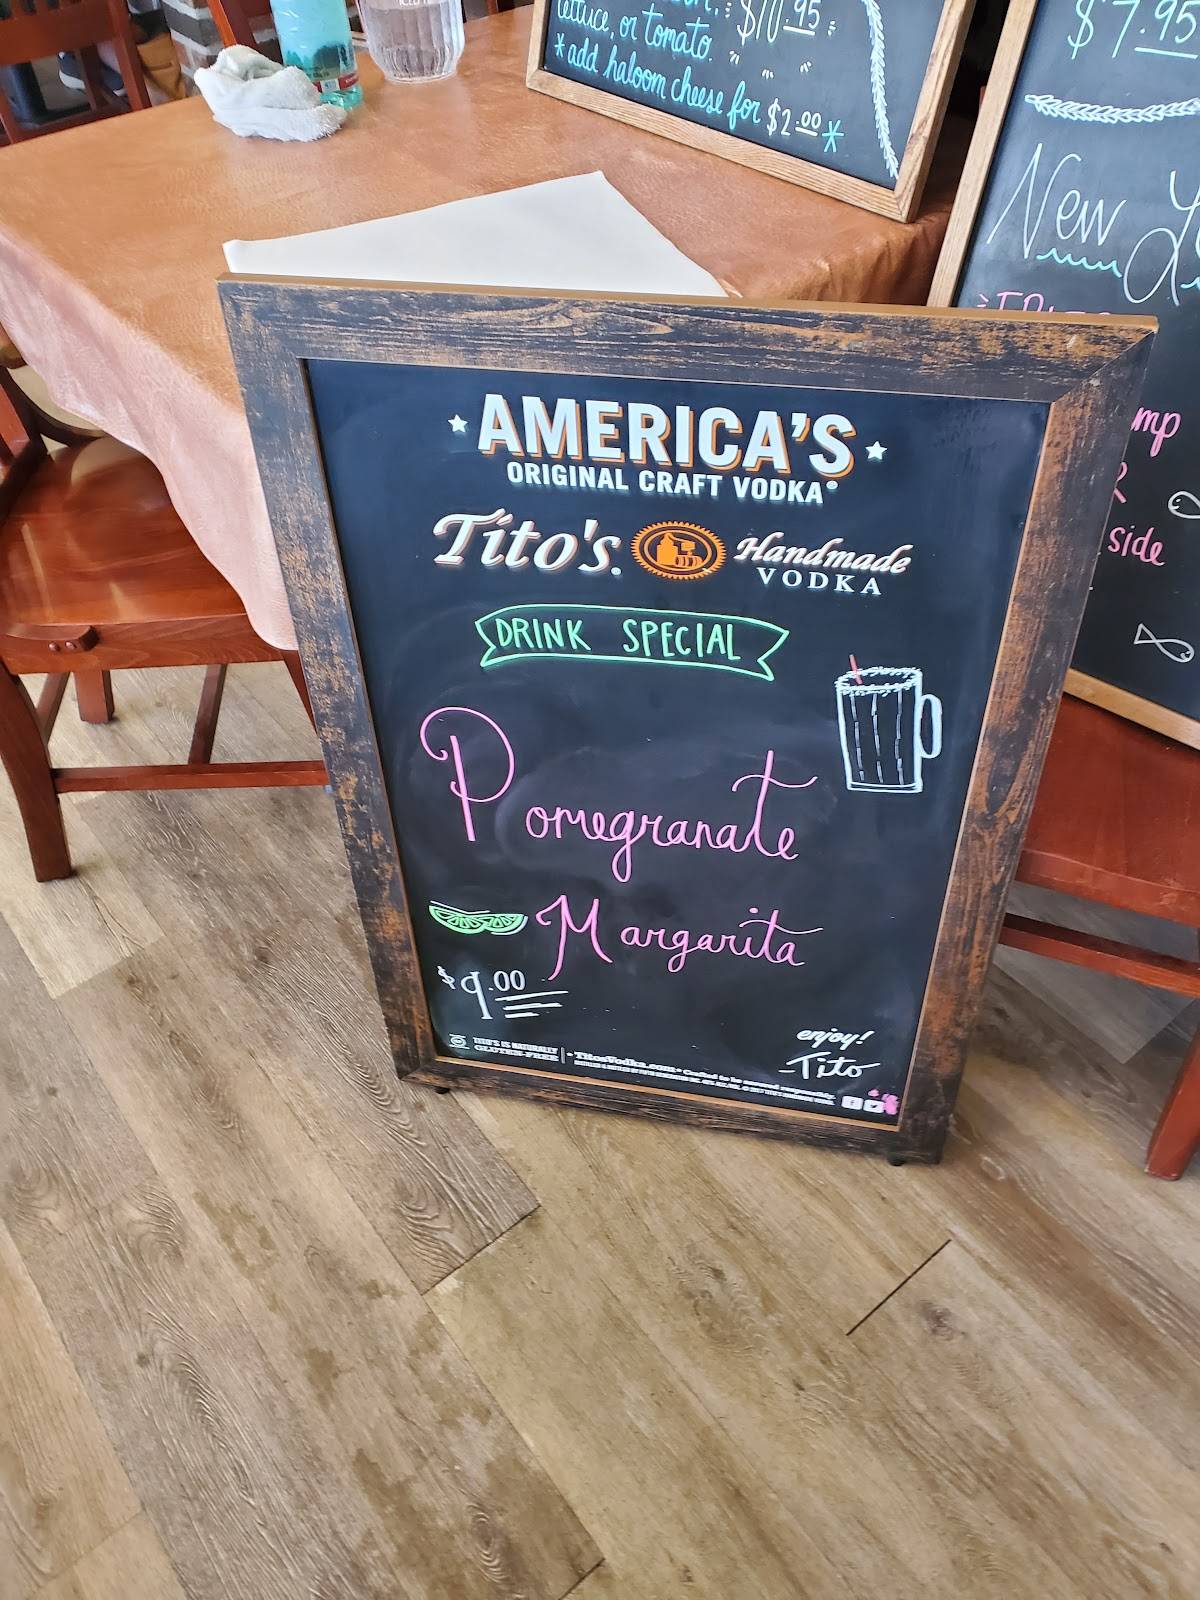 $10.95
lettuce, or tomato.
*add haloom cheese for $2.00*
$7.95
New
mp
side
AMERICA'S
ORIGINAL CRAFT VODKA®
Tito's. Handmade
VODKA
DRINK SPECIAL
Pomegranate
Margarita
$9.00
enjoy!
-Tito
TITO'S IS NATURALLY
GLUTEN-FREE
TitosVodka.com • Crafted to be savored responsibly.